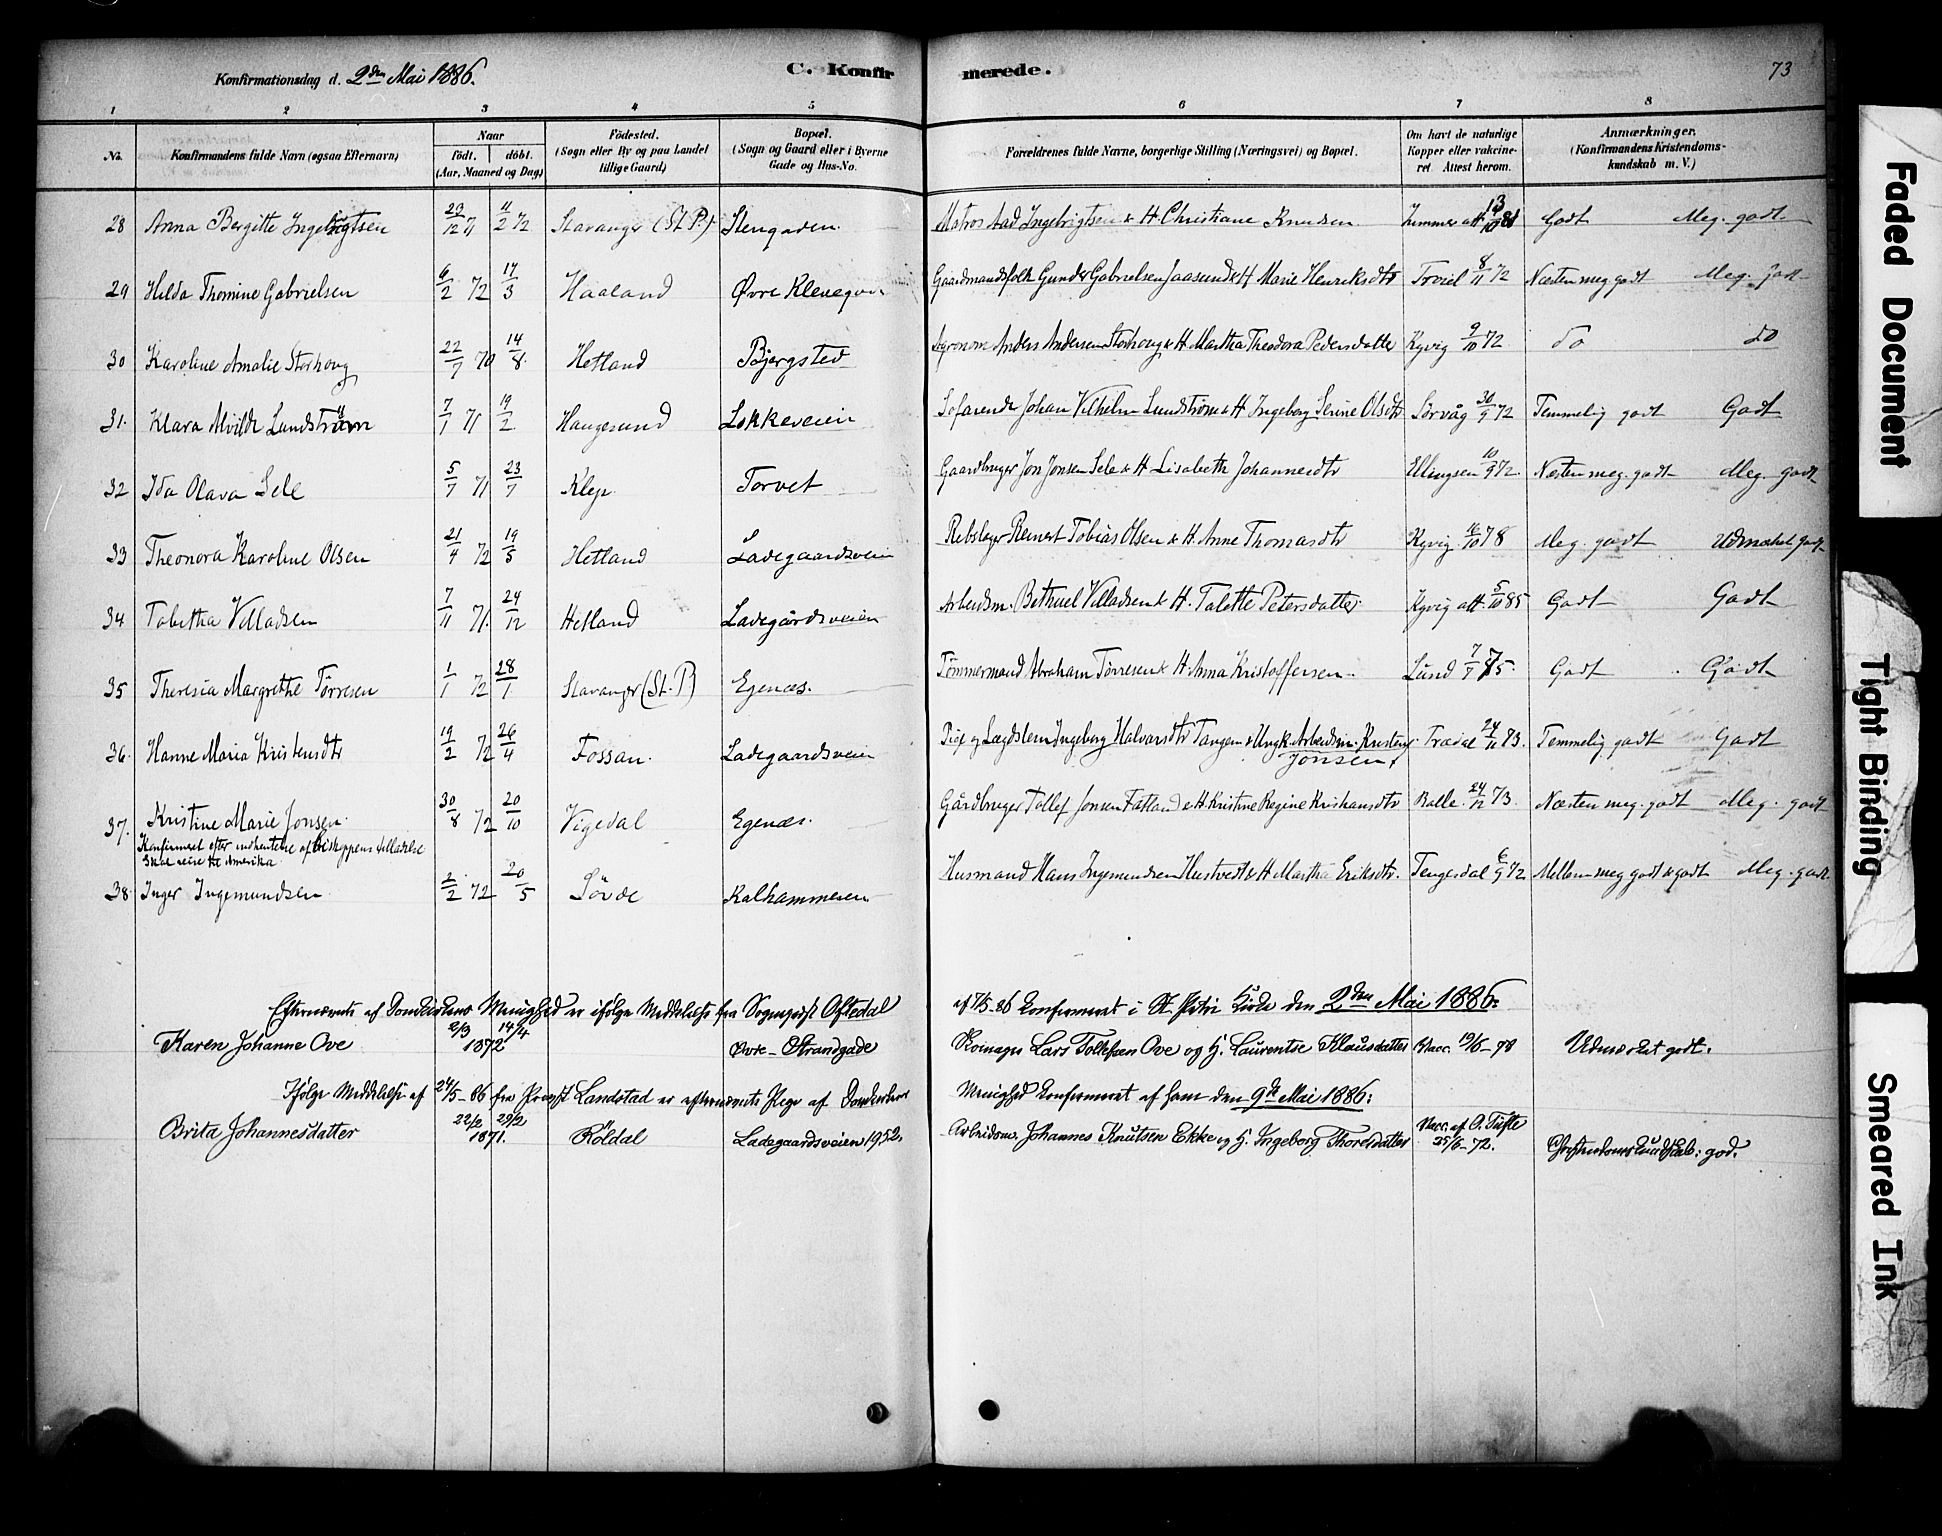 Konfirmationsdag d. 2den Mai 1886.
C. Konfirmerede.
73
1 2 3 4 5 6 7 8
No.
Konfirmandens fulde Navn (ogsaa Efternavn)
Naar
födt. döbt.
(Aar, Maaned og Dag)
Födested.
(Sogn eller By og paa Landet tillige Gaard)
Bopæl.
(Sogn og Gaard eller i Byerne Gade og Hus-No.
Forældrenes fulde Navne, borgerlige Stilling (Næringsvei) og Bopæl.
Om havt de naturlige Kopper eller vakcineret Attest herom.
Anmærkninger.
(Konfirmandens Kristendomskundskab m. V.)
28 Anna Bergitte Ingebrigtsen 29/12 71 11/2 72 Stavanger (St. P.) Stengaden. Matros Aad Ingebrigtsen & H. Christiane Knudsen Zimmer att 13/10 81 Godt Meg. godt
29 Hilda Thomine Gabrielsen 6/2 72 17/3 Haaland Øvre Kleveqv Gaardmandsfolk Gunder Gabrielsen Jaasund & H Marie Henriksdtr 8/11 72 Næsten meg godt Meg. godt
30 Karoline Amalie Storhoug 22/7 70 14/8 Hetland Bjergsted Agronom Anders Andersen Storhoug & H. Martha Theodora Pedersdatter Kyvig 9/10 72 do do
31. Klara Alvilde Lundström 7/1 71 19/2 Haugesund Løkkeveien Sofarende Johan Vilhelm Lundström & H Ingeborg Serine Olsdtr Sörvåg 30/9 72 Temmelig godt Godt
32 Ida Olava Sele 5/7 71 23/7 Klep Torvet Gaardbruger Jon Jonsen Sele & H Lisabeth Johannesdtr Ellingsen 10/9 72. Næsten meg. godt Meg. godt
33 Theonora Karoline Olsen 21/4 72 19/5 Hetland Ladegaardsveien Rebslager Reinert Tobias Olsen & H. Anne Thomasdtr Kyvig 16/10 78 Meg. godt Udmærket godt
34 Tabitha Villadsen 7/11 71. 24/12 Hetland Ladegårdsveien Arbeidsm. Bethuel Villadsen & H. Talette Petersdatter Kyvig att. 5/10 85 Godt Godt
35 Theresia Margrethe Törresen 1/1 72 28/1 Stavanger (St. P) Egenæs. Tömmermand Abraham Törresen & H. Anna Kristoffersen Lund 7/9 75. Godt Godt
36. Hanne Maria Kristensdtr 19/2 72 26/4 Fossan. Ladegaardsveien Pige og Lægdslem Ingeborg Halvorsdtr Tangen & Ungk. Arbeidsm. Kristen Jonsen. Tradal 24/11 73. Temmelig godt Godt
37. Kristine Marie Jonsen 30/8 72 20/10 Vigedal Egenæs. Gårdbruger Tollef Jonsen Fatland & H. Kristine Regine Kristiansdtr Balle. 24/12 73. Næsten meg. godt Meg. godt
Konfirmeret efter indhentelse af Biskoppens tilladelse
Skal reise til Amerika
38 Inger Ingemundsen 2/2 72 20/5 Sövde Kalhammeren Husmand Hans Ingemundsen Hustvedt & H Martha Eriksdtr. Tengesdal 6/9 72 Mellem meg godt & godt Meg. godt
Efternævnte af Domkirkens Menighed er ifølge Meddelelse fra Sogneprest Oftedal af 7/5-86 konfirmeret i St. Petri Kirke den 2den Mai 1886:
Karen Johanne Ove 2/3 1872 14/4 Øvre-Strandgade Lars Tollefsen Ove og H. Laurentse Klausdatter Vacc. 19/6-78 Udmærket godt.
Ifølge Meddelelse af 24/5-86 fra Provst Landstad er efternævnte Pige af Domkirkens Menighed konfirmeret af ham den 9de Mai 1886:
Brita Johannesdatter 22/2 1871. 29/2 Röldal Ladegaardsveien 1952. Arbeidsm. Johannes Knutsen Ekke og H. Ingeborg Thoresdatter Vacc. af O. Tufte 25/6-72. Christendomskundskab: god.
Faded Document
Tight Binding
Smeared Ink